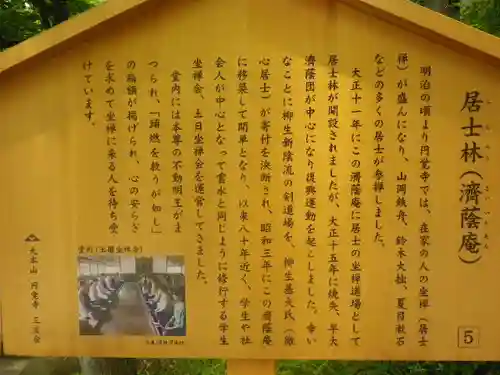 居士林(濟蔭庵)
こじりん
さいいんあん
明治の頃より円覚寺では、在家の人の坐禅(居士
禅)が盛んになり、山岡鉄舟、鈴木大拙、夏目漱石
などの多くの居士が参禅しました。
大正十一年にこの濟蔭庵に居士の坐禅道場として
居士林が開設されましたが、大正十五年に焼失、早大
濟蔭団が中心になり復興運動を起こしました。幸い
なことに柳生新陰流の剣道場を、柳生基夫氏(
心居士)が寄付を決断され、昭和三年にこの濟蔭庵
に移築して開単となり、以来八十年近く、学生や社
会人が中心となって雲水と同じように修行する学生
坐禅会、土日坐禅会を運営してきました。
堂内には本尊の不動明王がま
つられ、「頭燃を救うが如し」
の額が掲げられ、心の安らぎ
を求めて坐禅に来る人を待ち受
けています。
大本山 円覚寺 三友会
5